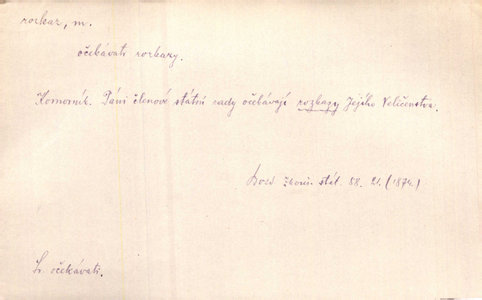 rozkaz, m.
očekávati rozkazy.
Komorník. Páni členové státní rady očekávají rozkazy Jejího Veličenstva.
stěl. 88. 21. (1874.)
Sr. očekávati.